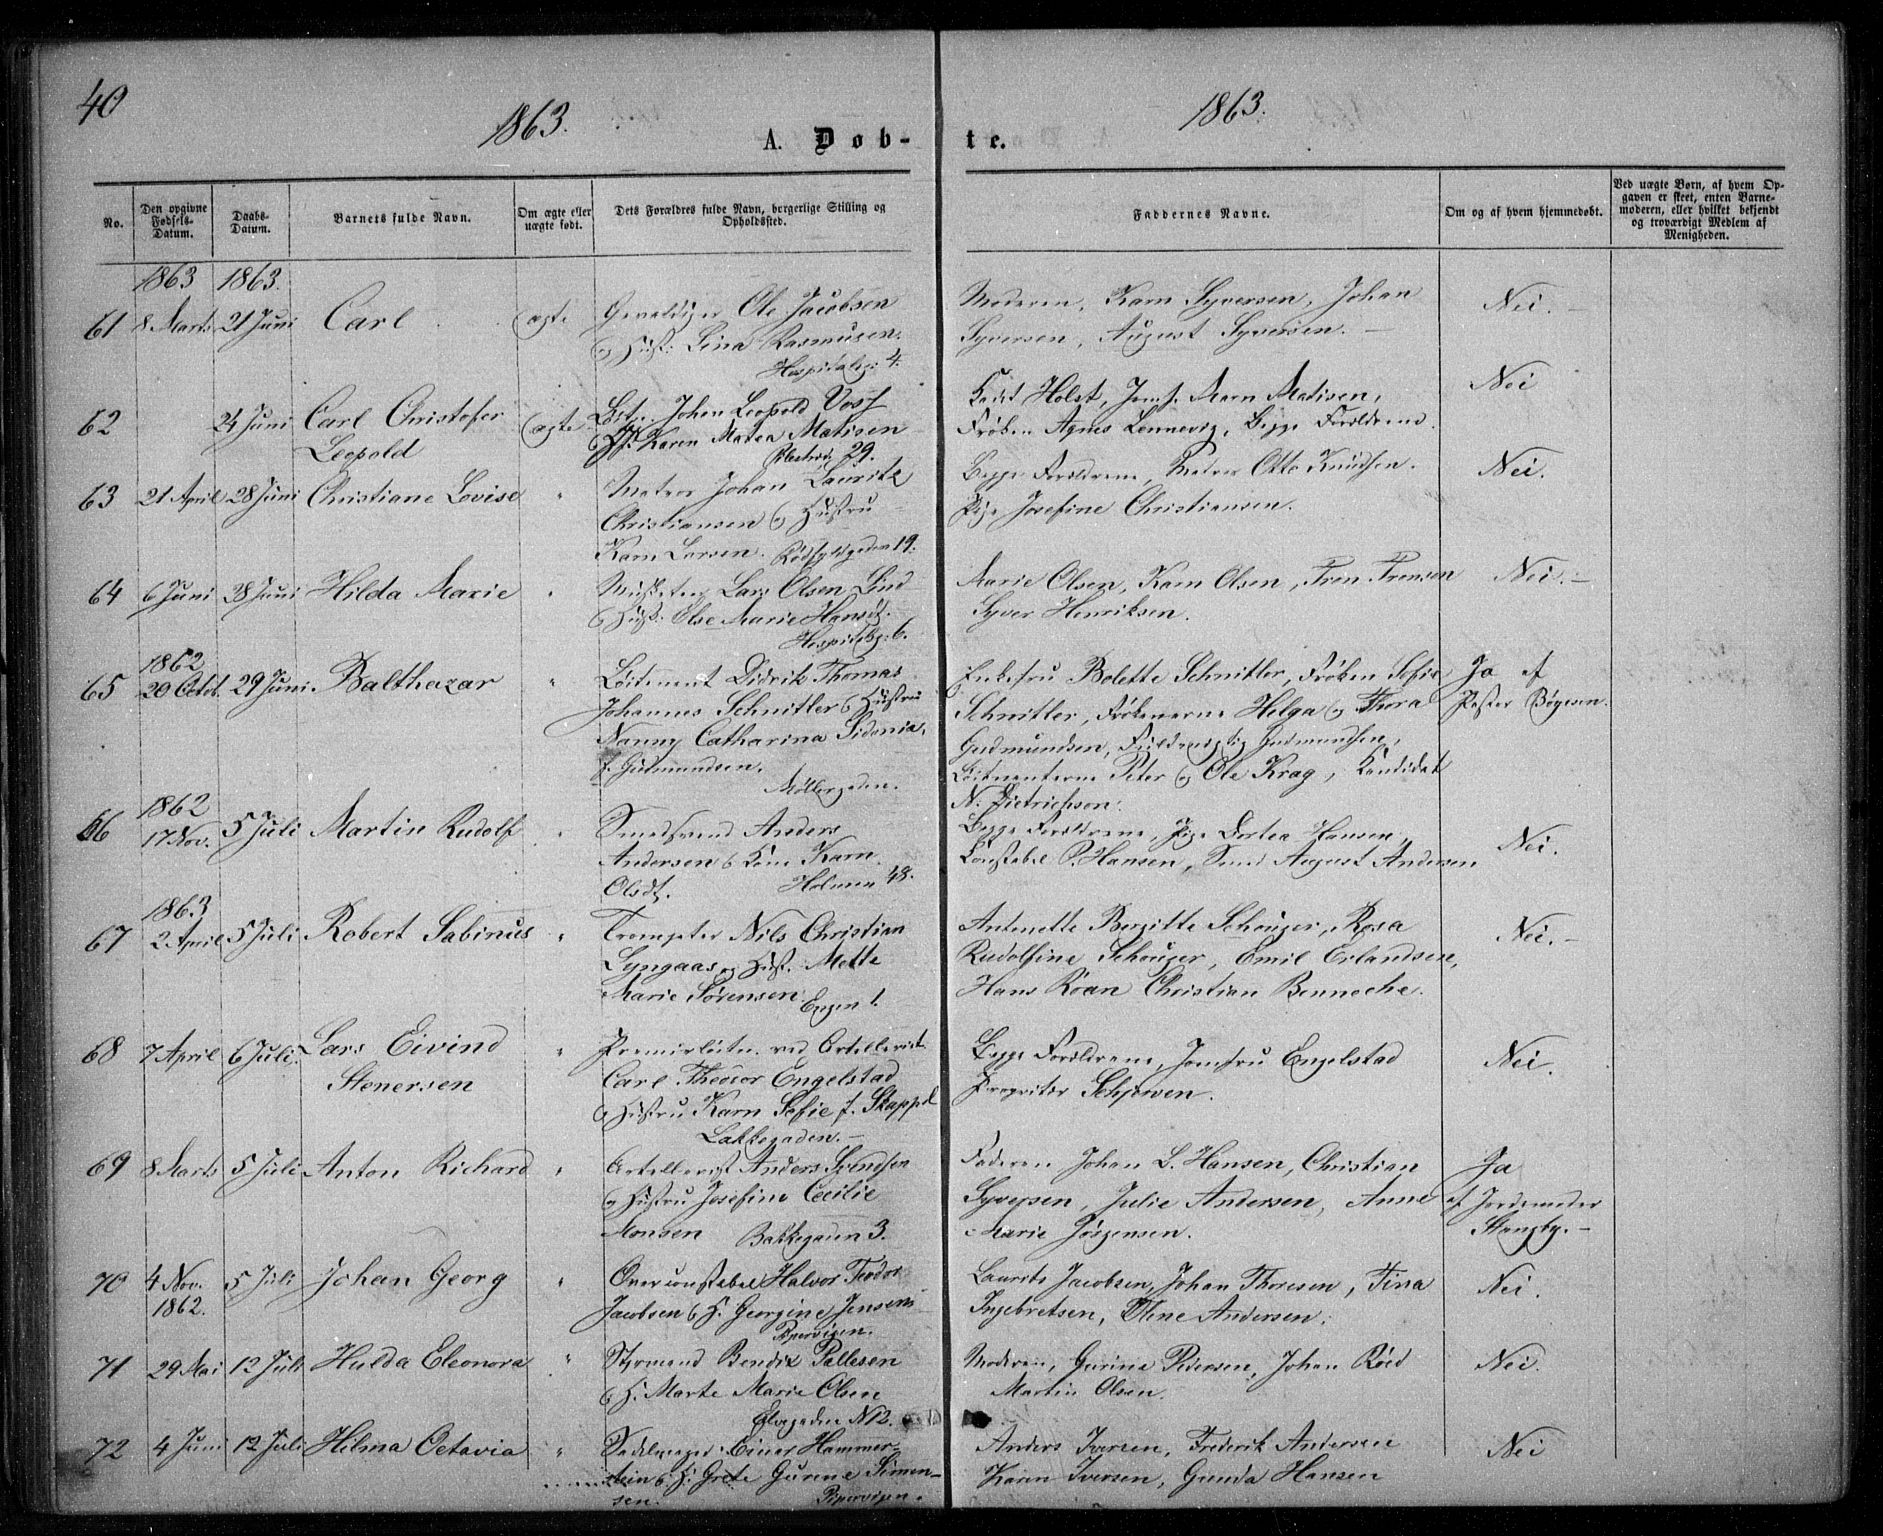 40
1863.
1863.
A. Døb-
te.
No.
Den opgivne Fødsels-Datum.
Daabs-Datum.
Barnets fulde Navn.
Om ægte eller uægte født.
Dets Forældres fulde Navn, borgerlige Stilling og Opholdssted.
Faddernes Navne.
Om og af hvem hjemmedøbt.
Ved uægte Børn, af hvem Opgaven er skeet, enten Barnemoderen, eller hvilket bekjendt og troværdigt Medlem af Menigheden.
1863 1863.
61 8 Marts 21 Juni Carl ægte Gevaldiger Ole Jacobsen
og Hust: Lina Rasmusen.
Hospitalsg: 4.
Moderen, Karn Syversen, Johan
Syversen, August Syversen. –
Nei. –
62 24 Juni Carl Christofer
Leopold
ægte Johan Leopold Voss
Karen Matea Matisen
29.
Kadet Holst, Jomf. Marn Matisen,
Frøken Agnes Lennevig, Begge Forældrene.
Nei
63 21 April 28 Juni Christiane Lovise " Matros Johan Lauritz
Christiansen og Hustru
Karn Larsen. Rødfyldgaden 19.
Begge Forældrene, Matros Otto Knudsen.
Pige Josefine Christiansen.
Nei.
64 6 Juni 28 Juni Hilda Marie " Musketer Lars Olsen Lind
og Husk. Else Marie Hansdt.
Hospitalsg: 6.
Marie Olsen, Karn Olsen, Fren Frensen
Syver Henriksen.
Nei. –
1862
65 20 Octbr. 29 Juni. Balthazar " Løitenant Didrik Thomas
Johannes Schnitler og Hustru
Nanny Catharina Sidonia,
f. Gudmundsen.
Møllergaden.
Enkefru Bolette Schnitler, Frøken Sofie
Schnitler, Frøknerne Helga og Thora
Gudmundsen, Gudmundsen,
Løitnanterne Peter og Ole Krag, Kandidat
N. Dietrichson.
Ja af
Pastor Bøgesen.
1862
66 17 Nov. 5 Juli Martin Rudolf " Smedsvend Anders
Andersen og Kone Karn
Olsdt. Holmen 48.
Begge Forældrene, Pige Dortea Hansen,
Konstabel P. Hansen, Smed August Andersen
Nei.
1863
67 2 April 5 Juli Robert Sabinus " Trompeter Nils Christian
Lyngaas og Hust. Mette
Marie Sørensen
Engen 1.
Antonette Bergitte Schouger, Rosa
Rudolfine Schouger, Emil Erlandsen,
Hans Roan Christian Benneche.
Nei. –
68 7 April 6 Juli. Lars Eivind
Stenersen
" Premierløitn. ved Artilleriet
Carl Theodor Engelstad
og Hustru Karn Sofie f. Skappel
Lakkegaden. –
Begge Forældrene, Jomfru Engelstad
Propritær Schjørven.
Nei.
69 8 Marts 5 Juli Anton Richard " Artillerist Anders Svendsen
og Hustru Josefine Cecilie
Monsen Bakkegaden 3.
Faderen Johan L. Hansen, Christian
Syversen, Julie Andersen, Anne
Marie Jørgensen.
Ja
af Jordemoder
Stangby. –
70 4 Nov.
1862.
5 Juli Johan Georg " Overconstabel Halvor Teodor
Jacobsen og H. Georgine Jensen
Pipervigen.
Laurits Jacobsen, Johan Thoresen, Tina
Ingebretsen, Oline Andersen.
Nei.
71 29 Mai 12 Juli Hulda Eleonora " Styrmand Bendix Pallesen
og H. Marte Marie Olsen
Elvegaden N 12.
Moderen, Gurine Pedersen, Johan Röed
Martin Olsen.
Nei.
72 4 Juni 12 Juli Hilma Octavia " Sadelmager Einar Hammer-
stein og H: Grete Gurene Simen-
sen. Pipervigen.
Anders Iversen, Frederik Andersen
Karen Iversen, Gunda Hansen
Nei